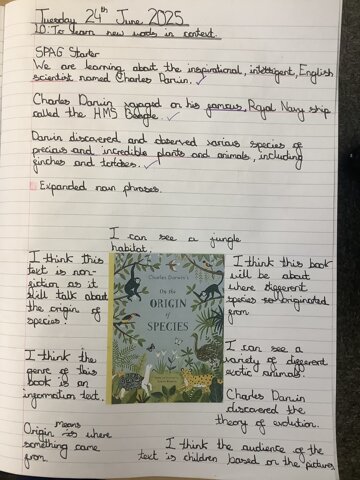 Tuesday 24th June 2025
LO: To learn new words in context.
SPAG Starter
We are learning about the inspirational, intelligent, English
scientist named Charles Darwin.
Charles Darwin voyaged on his famous, Royal Navy ship
called the HMS Beagle.
Darwin discovered and observed various species of
precious and incredible plants and animals, including
finches and tortoises.
Expanded noun phrases.
I can see a jungle
habitat.
I think this
text is non-
fiction as it
will talk about
the origin of
species.
I think the
genre of this
book is an
information text.
Origin means is where
something came
from
Charles Darwin's
On the
ORIGIN
of
SPECIES
I think this book
will be about
where different
species so originated
from
I can see a
variety of different
exotic animals.
Charles Darwin
discovered the
theory of evolution.
I think the audience of the
text is children based on the pictures